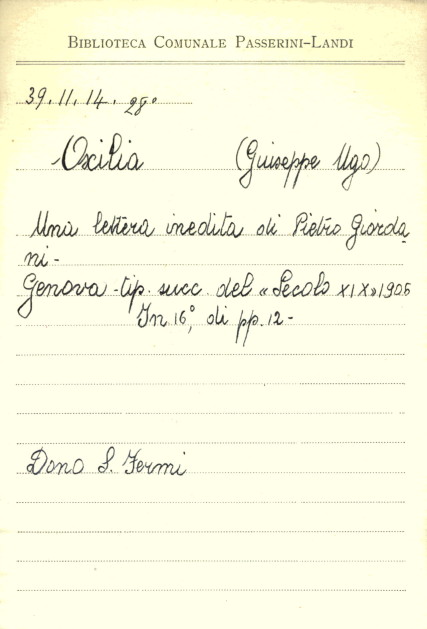 BIBLIOTECA COMUNALE PASSERINI-LANDI
39.11.14.28º
Oxilia (Giuseppe Ugo)
Una lettera inedita di Pietro Giorda
ni -
Genova - tip. succ. del « Secolo XIX» 1905
In 16º, di pp. 12 -
Dono S. Fermi